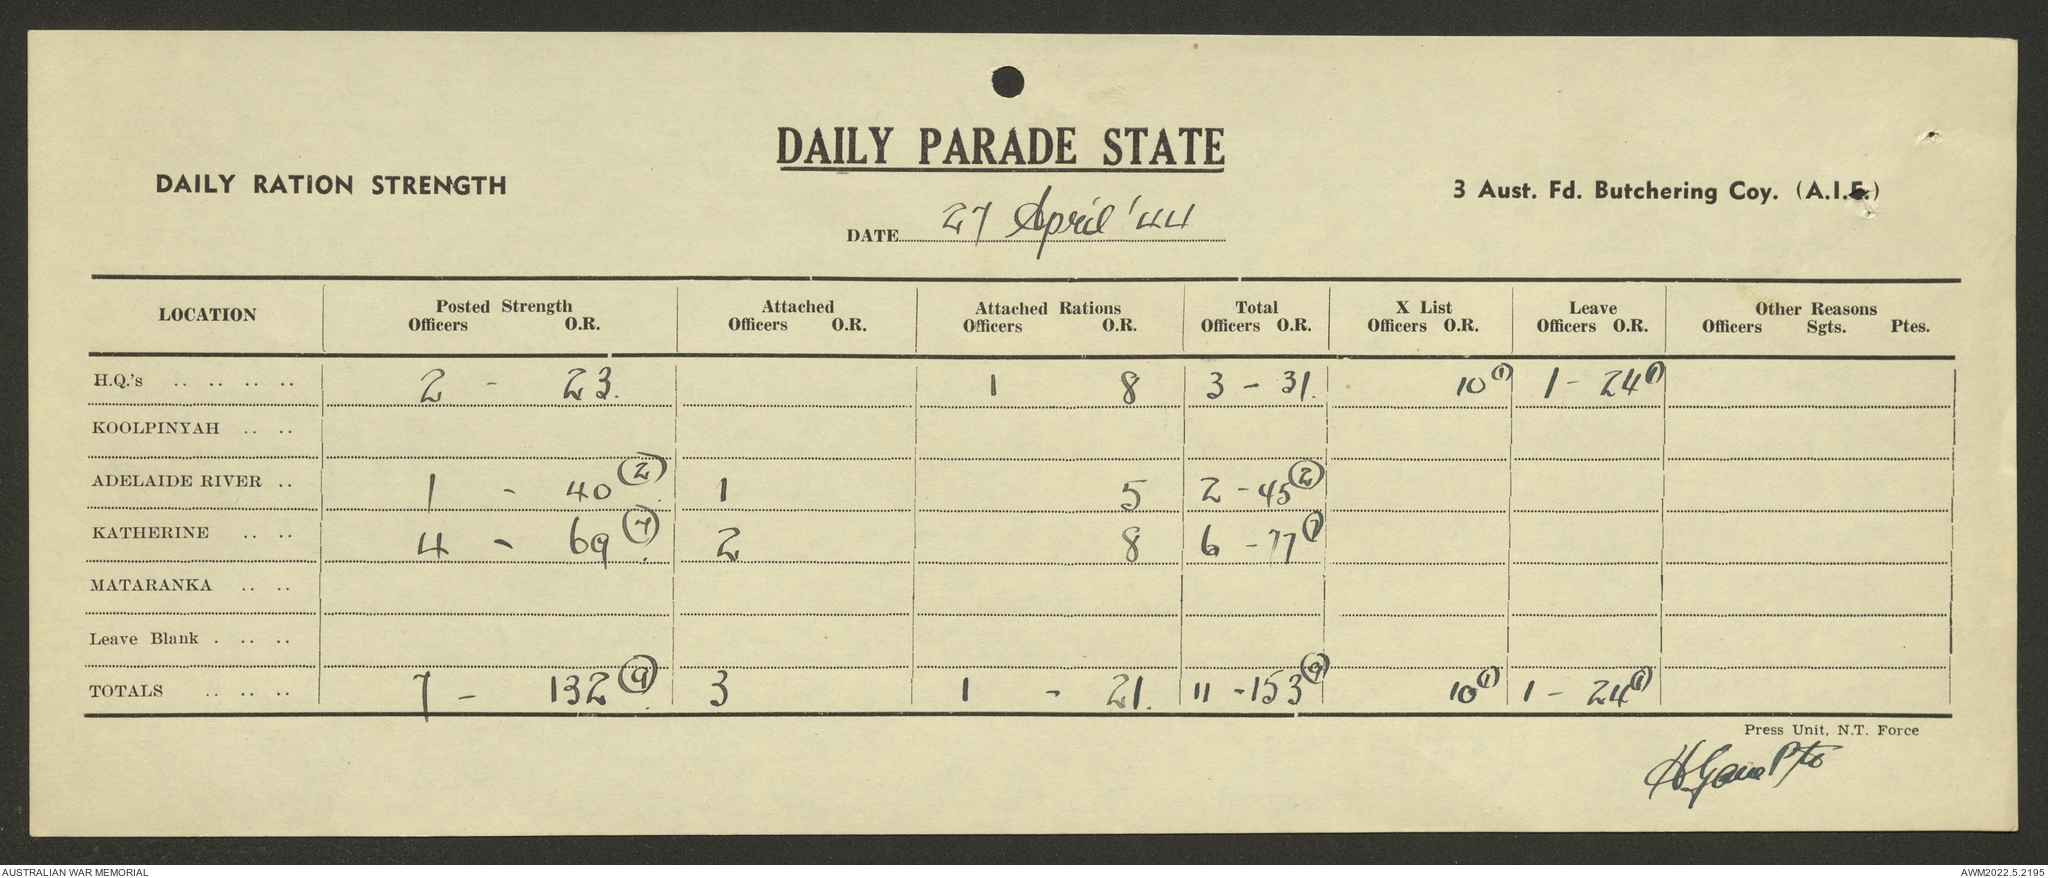 DAILY PARADE STATE
DAILY RATION STRENGTH
3 Aust. Fd. Butchering Coy. (A.I.F.)
DATE 27 April '44
LOCATION Posted Strength Officers O.R. Attached Officers O.R. Attached Rations Officers O.R. Total Officers O.R. X List Officers O.R. Leave Officers O.R. Other Reasons Officers Sgts. Ptes.
H.Q.'s .. .. .. .. 2 - 23. 1 8 3 - 31. 10 (1) 1 - 24 (1)
KOOLPINYAH .. ..
ADELAIDE RIVER .. 1 - 40 (2) 1 5 2 - 45 (2)
KATHERINE .. .. 4 - 69 (7) 2 8 6 - 77 (7)
MATARANKA .. ..
Leave Blank . .. ..
TOTALS .. .. .. 7 - 132 (9) 3 1 - 21. 11 - 153 (9) 10 (1) 1 - 24 (1)
Press Unit, N.T. Force
AUSTRALIAN WAR MEMORIAL
AWM2022.5.2195